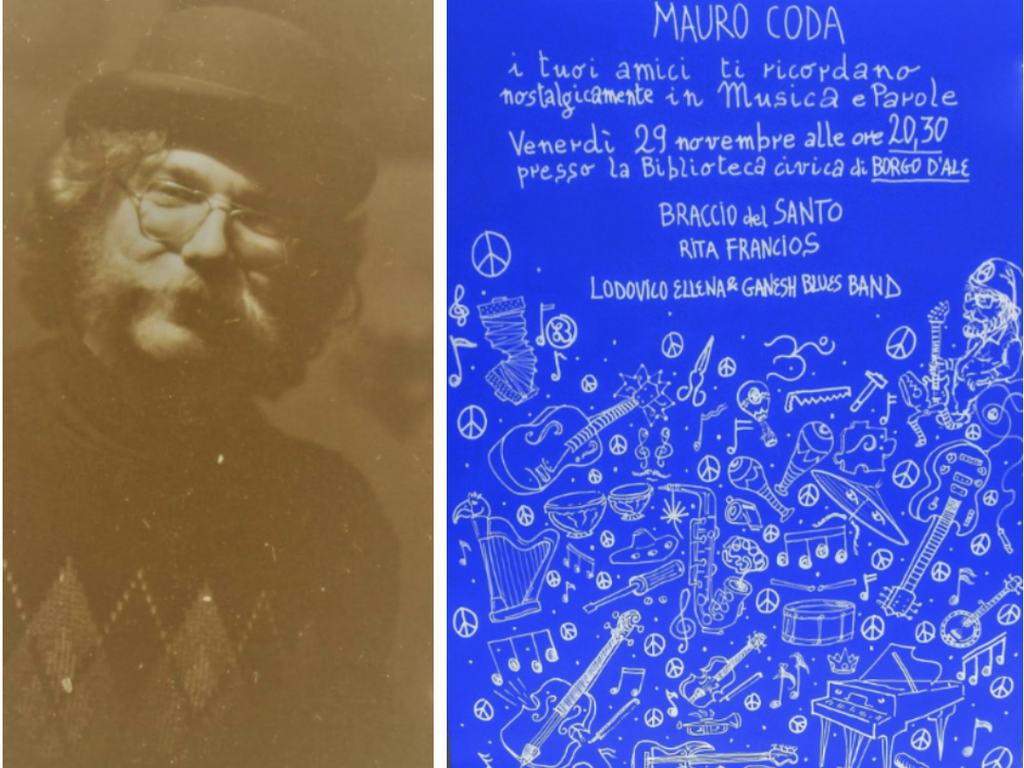 MAURO CODA
i tuoi amici ti ricordano
nostalgicamente in Musica e Parole
Venerdì 29 novembre alle ore 20,30
presso la Biblioteca civica di BORGO D'ALE
BRACCIO del SANTO
RITA FRANCIOS
LODOVICO ELLENA & GANESH BLUES BAND